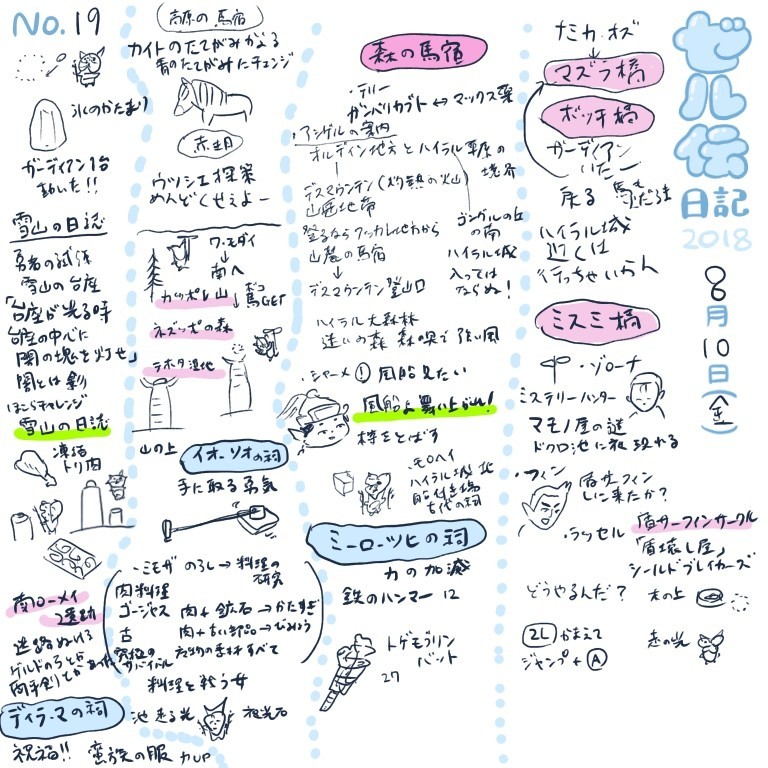 No.19
氷のかたまり
ガーディアン1台
動いた!!
雪山の日誌
勇者の試体
雪山の台座
「台座が光る時
台座の中心に
闇の塊を灯せ」
闇とは影
ほこらチャレンジ
雪山の日誌
凍結
トリ肉
南ローメイ
迷路ぬける
ゲルドの
両手剣
ディラ・マの祠
祝福!! 蛮族の服 力UP
高原の馬宿
カイトのたてがみかえる
青のたてがみにチェンジ
赤い月
ウツシエ探索
めんどくせえよー
ワ・モダイ
↓
南へ
カッポレ山
↓ボコ
馬GET
ネズッポの森
ラボタ湿地
山の上
イオ・ソオの祠
手に取る勇気
・ミモザ のろし→料理の
研究
肉料理
ゴージャス 肉+鉱石→かたすぎ
古 肉+古い部品→びみょう
究極の
サバイバル
料理と戦う女
池 走る光
祖光石
森の馬宿
・テリー
ガンバリカブト↔マックス薬
・アシゲルの案内
オルディン地方とハイラル平原の
境界
デスマウンテン(灼熱の火山)
山麓地帯
登るならアッカレ地方から
山麓の馬宿
↓
デスマウンテン登山口
ゴングルの丘
の南
ハイラル城
入っては
ならぬ!
ハイラル大森林
迷いの森 森の奥で 強い風
・シャーメ ! 風船見たい
風船よ舞い上がれ!
樽をとばす
・モロヘイ
ハイラル城 北
船付き場
古代の祠
ミーロ・ツヒの祠
力の加減
鉄のハンマー 12
トゲモリブリン
バット
27
ナミカ・オズ
↓
マズラ橋
ボッチ橋
ガーディアン
いたー
戻る 馬もだる注
ハイラル城
近くは
行っちゃいかん
ミスミ橋
・ゾローナ
ミステリーハンター
マモノ屋の謎
ドクロ池に夜現れる
・フィン
盾サーフィン
しに来たか?
・ラッセル
盾サーフィンサークル
「盾壊し屋」
シールドブレイカーズ
どうやるんだ?
木の上
ZL かまえて
ジャンプ+A
走る光
ゼル伝
日記
2018
8月10日(金)